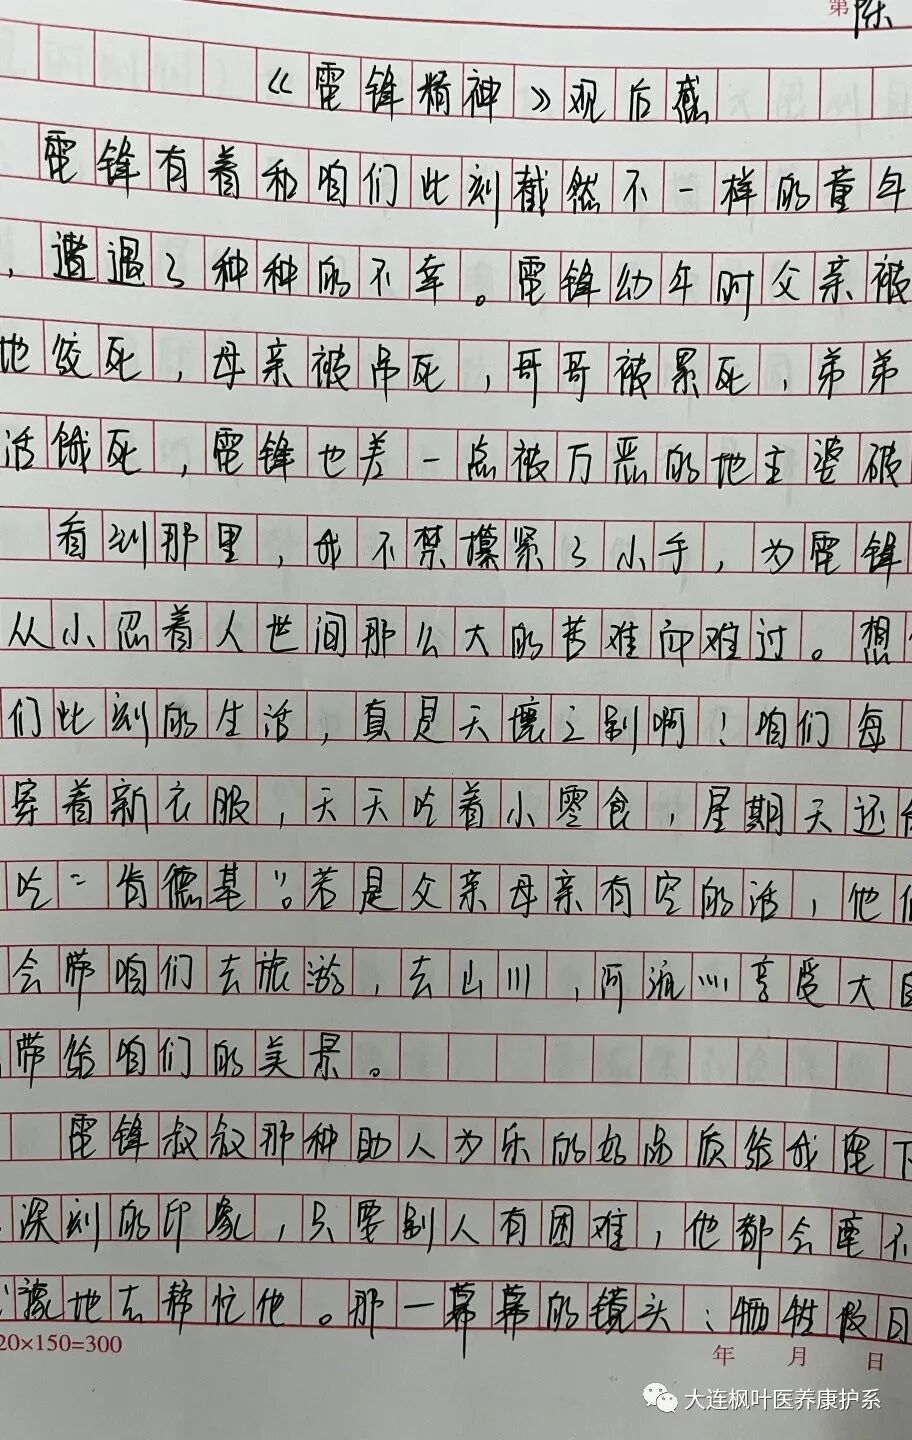 第
陈
《雷锋精神》观后感
雷锋有着和咱们此刻截然不一样的童年
，遭遇了种种的不幸。雷锋幼年时父亲被
地绞死，母亲被吊死，哥哥被累死，弟弟
活饿死，雷锋也差一点被万恶的地主婆破
看到那里，我不禁攥紧了小手，为雷锋
从小忍着人世间那么大的苦难而难过。想
们此刻的生活，真是天壤之别啊！咱们每
穿着新衣服，天天吃着小零食，星期天还
吃"肯德基"。若是父亲母亲有空的话，他们
会带咱们去旅游，去山川，河流……享受大自
带给咱们的美景。
雷锋叔叔那种助人为乐的好品质给我留下
深刻的印象，只要别人有困难，他都会毫不
豫地去帮忙他。那一幕幕的镜头：牺牲假日
20×150=300
年 月 日
大连枫叶医养康护系